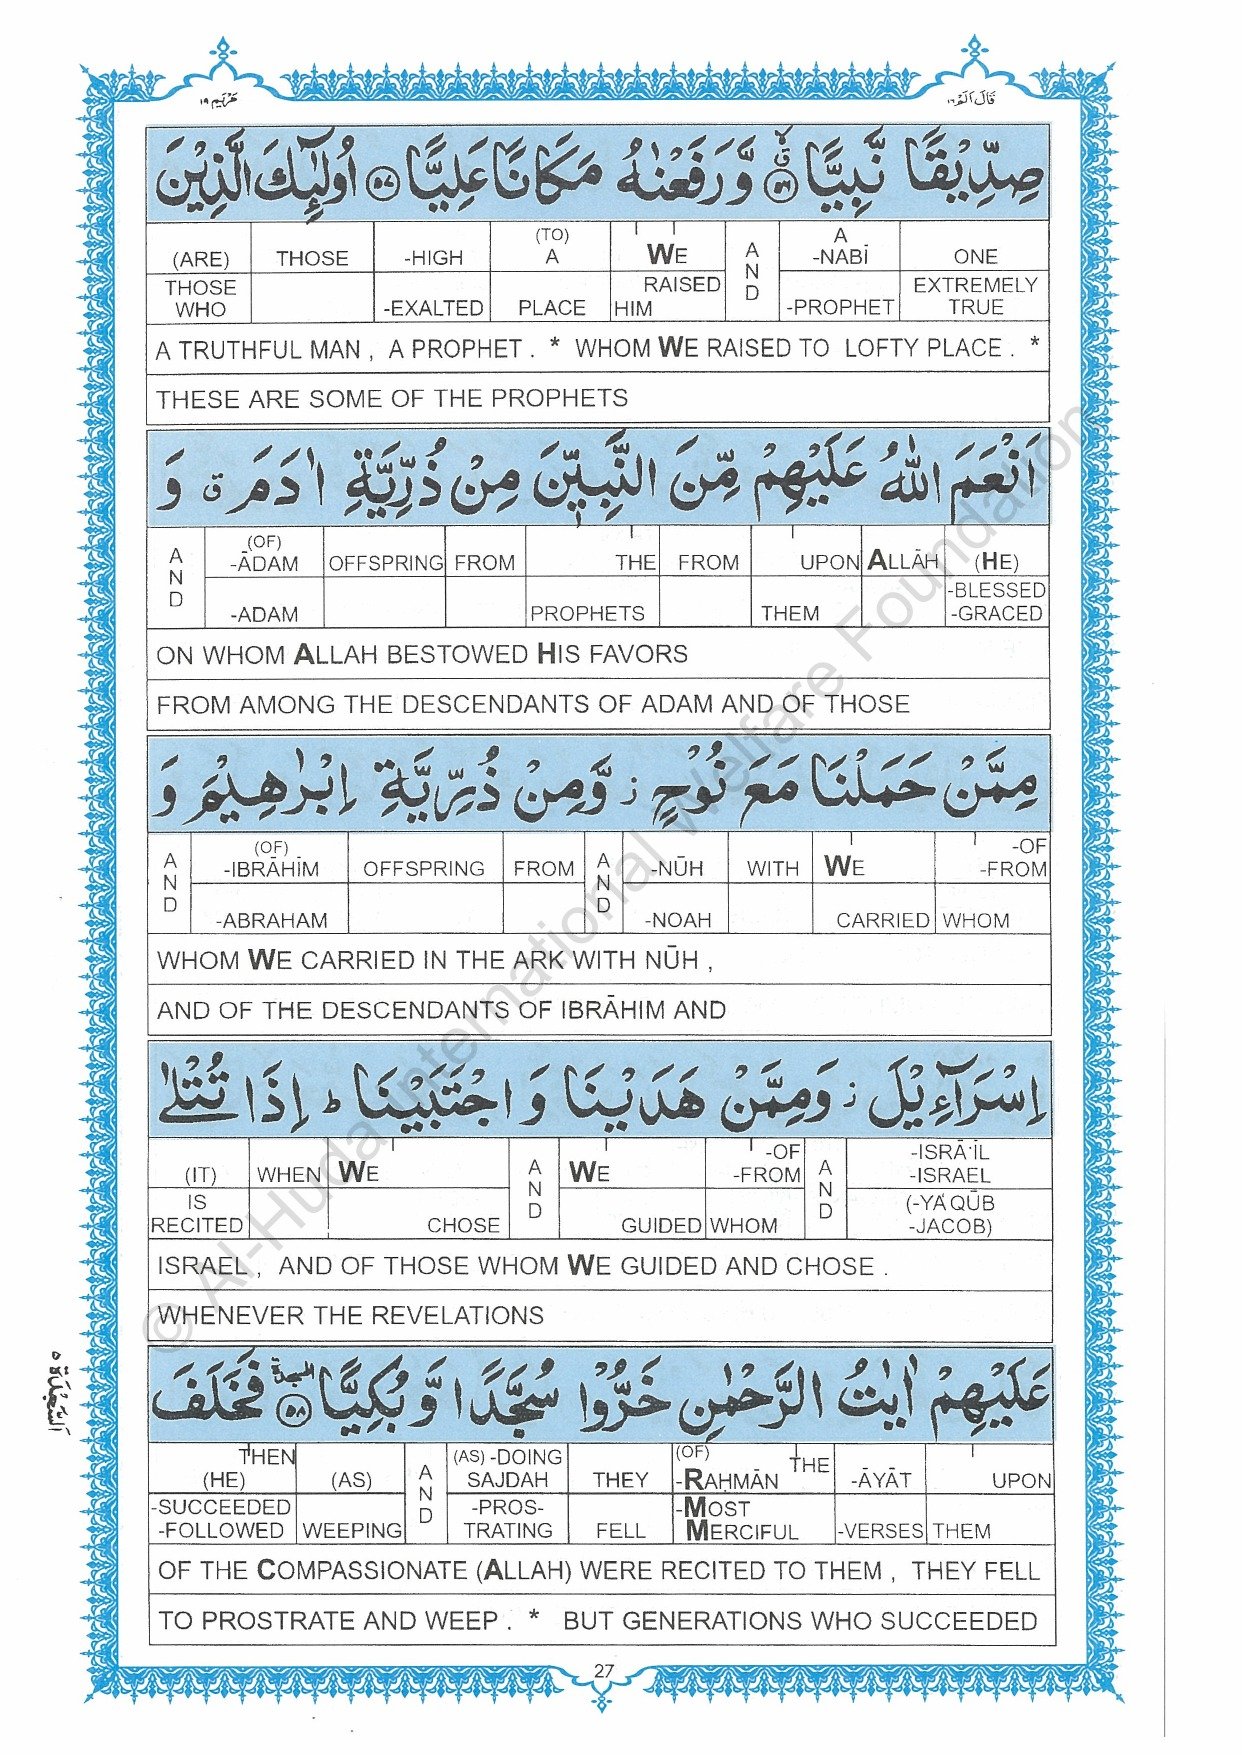 مَرْيَم ١٩
قَالَ اَلَمْ ١٦
صِدِّيْقًا نَّبِيًّا ۙ۵۶ وَّ رَفَعْنٰهُ مَكَانًا عَلِيًّا ۵۷ اُولٰٓئِكَ الَّذِيْنَ
(ARE) THOSE -HIGH (TO) A WE AND A -NABĪ ONE
THOSE WHO -EXALTED PLACE RAISED HIM -PROPHET EXTREMELY TRUE
A TRUTHFUL MAN , A PROPHET . * WHOM WE RAISED TO LOFTY PLACE . *
THESE ARE SOME OF THE PROPHETS
اَنْعَمَ اللّٰهُ عَلَيْهِمْ مِّنَ النَّبِيّٖنَ مِنْ ذُرِّيَّةِ اٰدَمَ ق وَ
AND (OF) -ĀDAM OFFSPRING FROM THE FROM UPON ALLĀH (HE)
-ADAM PROPHETS THEM -BLESSED -GRACED
ON WHOM ALLAH BESTOWED HIS FAVORS
FROM AMONG THE DESCENDANTS OF ADAM AND OF THOSE
مِمَّنْ حَمَلْنَا مَعَ نُوْحٍ ز وَّمِنْ ذُرِّيَّةِ اِبْرٰهِيْمَ وَ
AND (OF) -IBRĀHĪM OFFSPRING FROM AND -NŪH WITH WE -OF -FROM
-ABRAHAM -NOAH CARRIED WHOM
WHOM WE CARRIED IN THE ARK WITH NŪH ,
AND OF THE DESCENDANTS OF IBRĀHIM AND
اِسْرَآءِيْلَ ز وَمِمَّنْ هَدَيْنَا وَ اجْتَبَيْنَا ط اِذَا تُتْلٰى
(IT) WHEN WE AND WE -OF -FROM AND -ISRĀ'ĪL -ISRAEL
IS RECITED CHOSE GUIDED WHOM (-YA'QŪB -JACOB)
ISRAEL , AND OF THOSE WHOM WE GUIDED AND CHOSE .
WHENEVER THE REVELATIONS
عَلَيْهِمْ اٰيٰتُ الرَّحْمٰنِ خَرُّوْا سُجَّدًا وَّ بُكِيًّا السجدة ۵۸ فَخَلَفَ
THEN (HE) (AS) AND (AS) -DOING SAJDAH THEY (OF) -RAḤMĀN THE -ĀYĀT UPON
-SUCCEEDED -FOLLOWED WEEPING -PROS- TRATING FELL -MOST MERCIFUL -VERSES THEM
OF THE COMPASSIONATE (ALLAH) WERE RECITED TO THEM , THEY FELL
TO PROSTRATE AND WEEP . * BUT GENERATIONS WHO SUCCEEDED
اَلسَّجْدَة ۵
27
© Al-Huda International Welfare Foundation